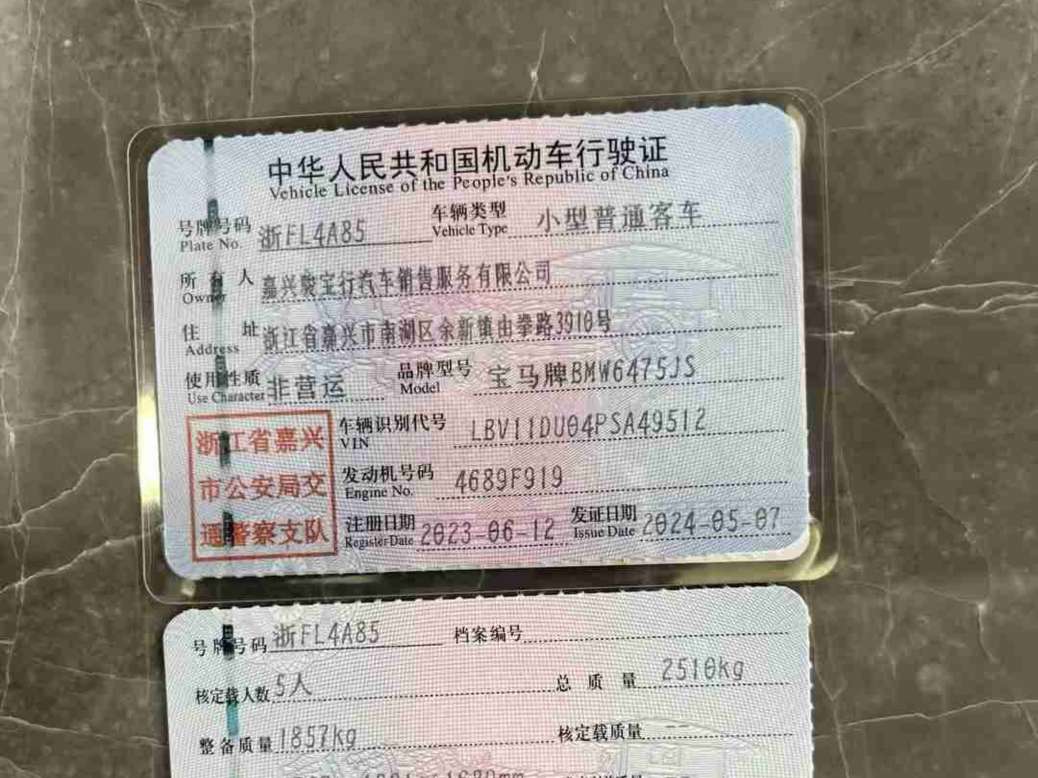 中华人民共和国机动车行驶证
Vehicle License of the People's Republic of China
号牌号码 浙FL4A85 车辆类型 小型普通客车
Plate No. Vehicle Type
所有人 嘉兴骏宝行汽车销售服务有限公司
Owner
住址 浙江省嘉兴市南湖区余新镇由拳路3910号
Address
使用性质 非营运 品牌型号 宝马牌BMW6475JS
Use Character Model
浙江省嘉兴
市公安局交
通警察支队
车辆识别代号 LBV11DU04PSA49512
VIN
发动机号码 4689F919
Engine No.
注册日期 2023-06-12 发证日期 2024-05-07
Register Date Issue Date
号牌号码 浙FL4A85 档案编号
核定载人数 5人 总质量 2510kg
整备质量 1857kg 核定载质量 --